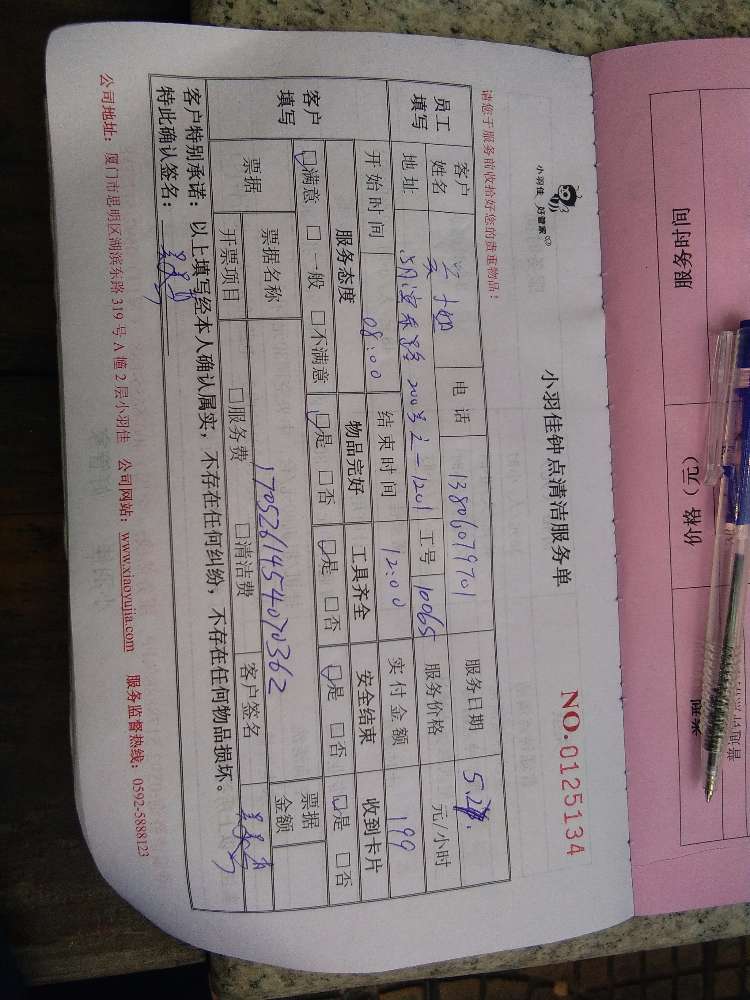 小羽佳 好管家
小羽佳钟点清洁服务单
NO.0125134
请您于服务前收拾好您的贵重物品！
员工填写 客户姓名 小姐 电话 13806079701 服务日期
地址 200号之一1201 工号 10065 服务价格 元/小时
开始时间 08:00 结束时间 12:00 实付金额 199
客户填写 服务态度 物品完好 工具齐全 安全结束 收到卡片
□满意 □一般 □不满意 □是 □否 □是 □否 □是 □否 □是 □否
票据 票据名称 1705261454070362 票据金额
开票项目 □服务费 □清洁费 客户签名
客户特别承诺：以上填写经本人确认属实，不存在任何纠纷，不存在任何物品损坏。
特此确认签名：
公司地址：厦门市思明区湖滨东路 319 号 A 幢 2 层小羽佳 公司网站：www.xiaoyujia.com 服务监督热线：0592-5888123
服务时间
价格（元）